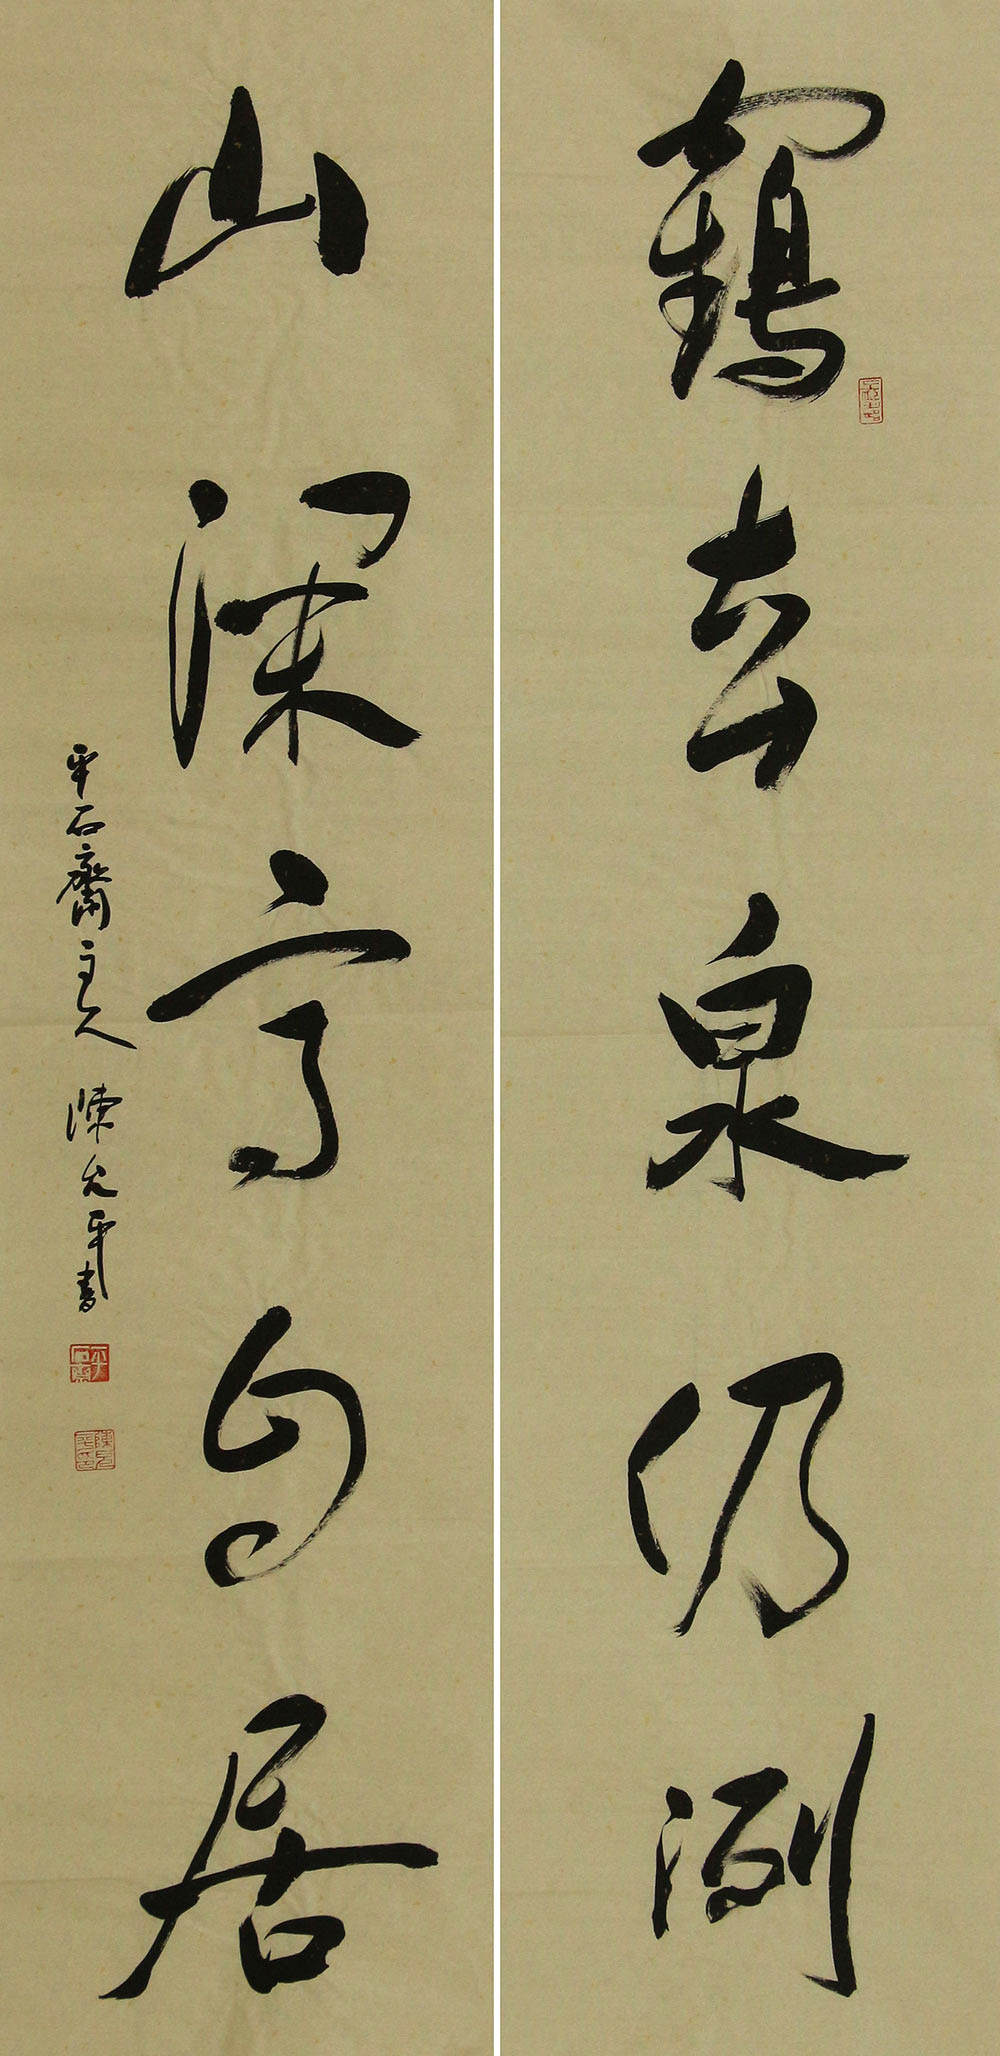 鶴去泉仍洌
山深亭自居
平石齋主人 陳允平書